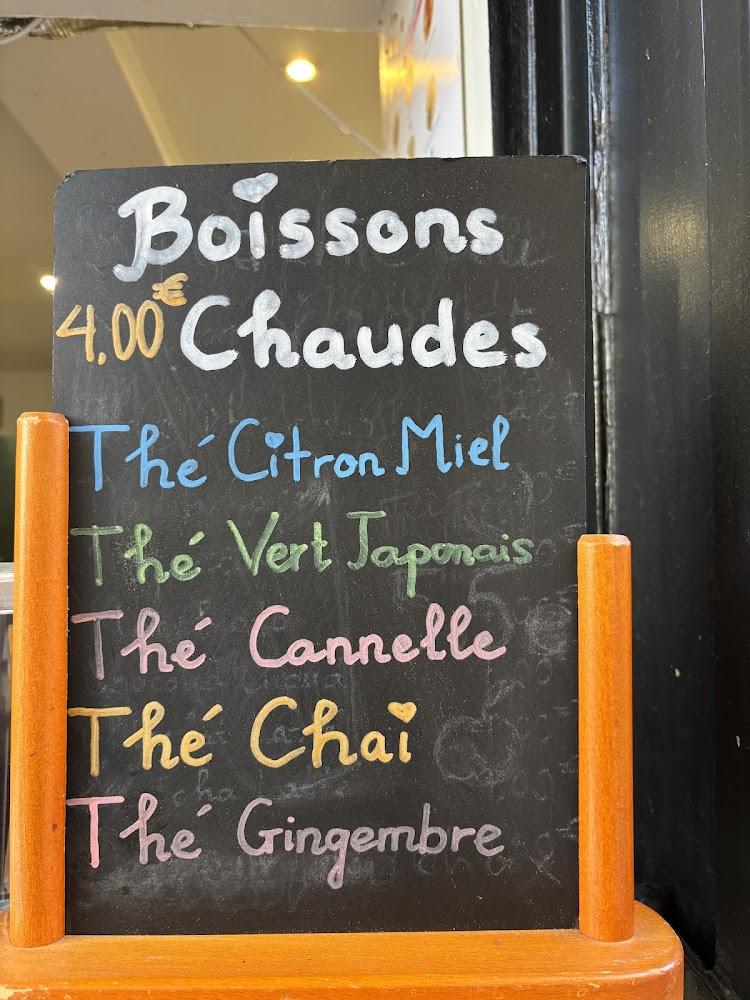 Boissons
4.00€ Chaudes
Thé Citron Miel
Thé Vert Japonais
Thé Cannelle
Thé Chai
Thé Gingembre